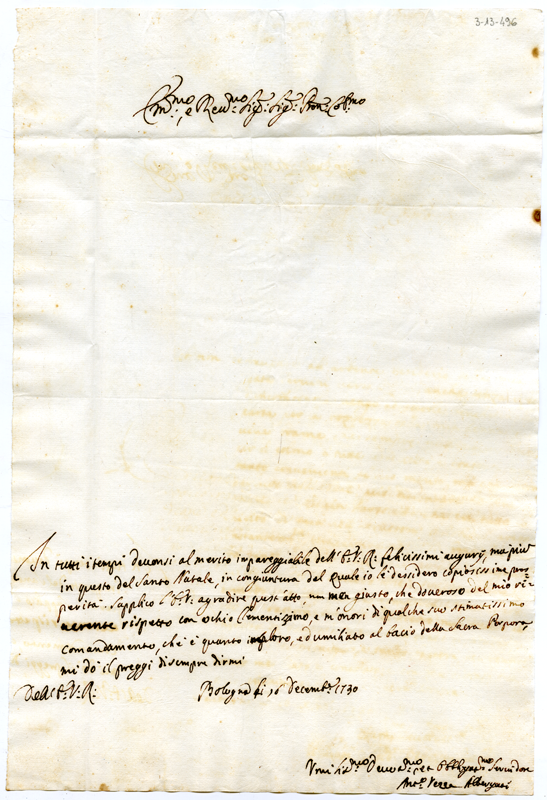 3-13-496
Em.mo e Rev.mo Sig.r Sig.r Pron. Col.mo
In tutti i tempi devonsi al merito impareggiabile dell' E.V.R. felicissimi augurÿ, ma più
in questo del Santo Natale, in congiuntura del quale io le dessidero copiosissime pros=
perità. Supplico l'E.V. agradire quest'atto, non men giusto, che doveroso del mio ri=
verente rispetto con ochio Clementissimo, e m'onori di qualche suo stimatissimo
comandamento, che è quanto imploro, ed umiliato al bacio della Sacra Porpora
mi dò il preggi di sempre dirmi
Dell' E.V.R.
Bologna li 16 Decembre 1730
Umiliss.mo Devot.mo et Obblig.mo Servidore
Ant.o